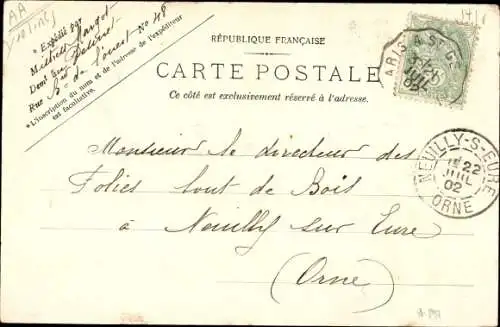 AA
* Expédié par
Dem^t
Rue B^d de l'ouest N° 46
*L'inscription du nom et de l'adresse de l'expéditeur
est facultative.
RÉPUBLIQUE FRANÇAISE
CARTE POSTALE
Ce côté est exclusivement réservé à l'adresse.
ARIS A ST G
JUIL
02
NEUILLY-S-EURE
22
JUIL
02
ORNE
Monsieur le directeur des
Folies Pont de Bois
à Neuilly sur Eure
(Orne)